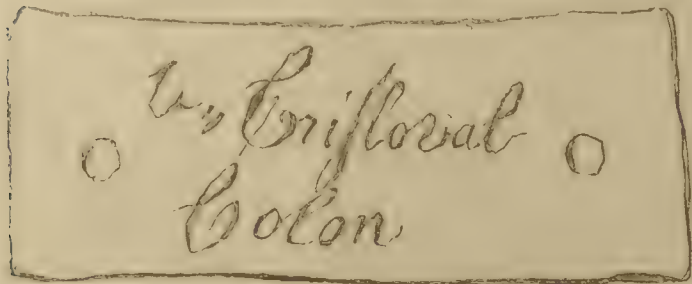 U. Cristoval
Colon